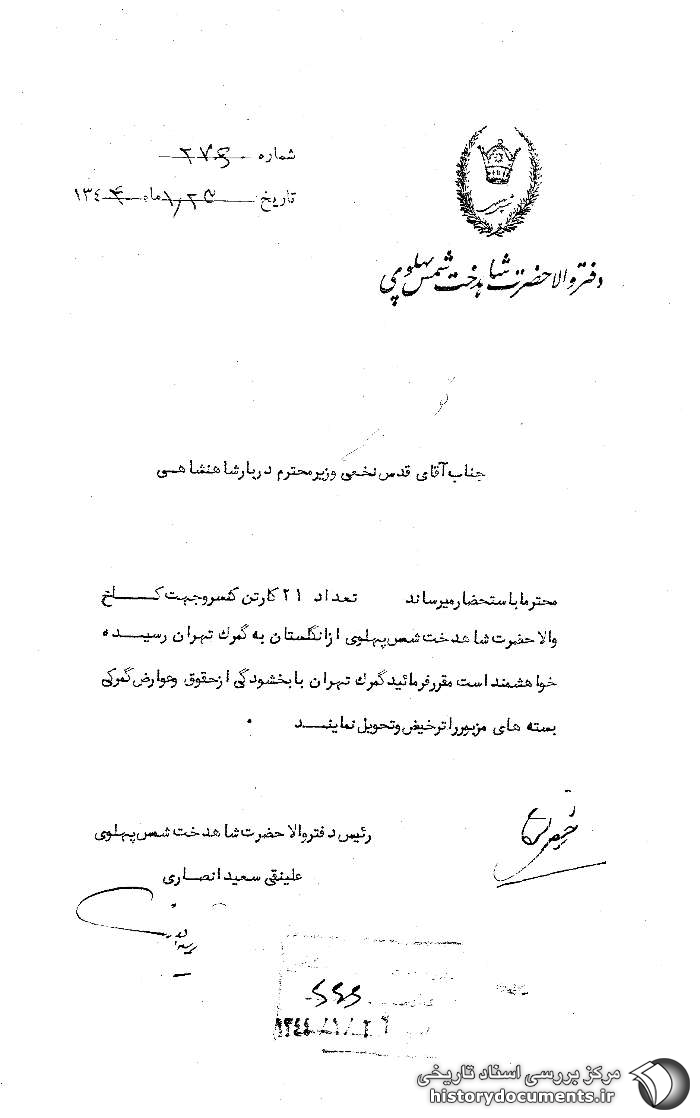 شماره ۲۷۶
تاریخ ۱/۲۵ ماه ۱۳۴۴
دفتر والاحضرت شاهدخت شمس پهلوی
جناب آقای قدس نخعی وزیر محترم دربار شاهنشاهی
محترما باستحضار میرساند تعداد ۲۱ کارتن کنسرو جهت کاخ
والاحضرت شاهدخت شمس پهلوی از انگلستان به گمرک تهران رسیده
خواهشمند است مقرر فرمائید گمرک تهران با بخشودگی از حقوق و عوارض گمرکی
بسته های مزبور را ترخیص و تحویل نمایند .
رئیس دفتر والاحضرت شاهدخت شمس پهلوی
علینقی سعید انصاری
مرکز بررسی اسناد تاریخی
historydocuments.ir